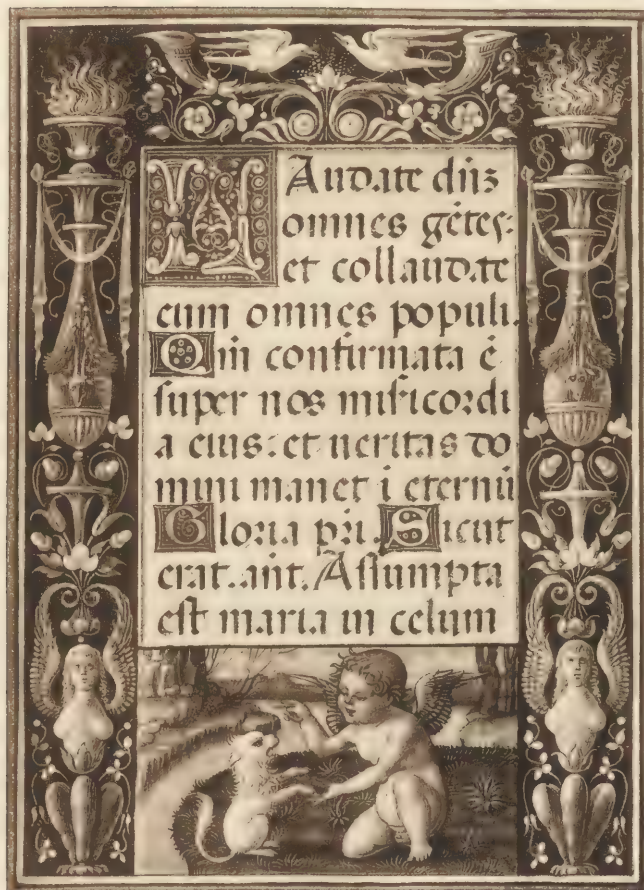 LAudate dn̄s
omnes gētes:
et collaudate
eum omnes populi.
Qm̄ confirmata ē
super nos misicordi
a eius: et ueritas do
mini manet i eternū
Gloria pri. Sicut
erat. ant. Assumpta
est maria in celum